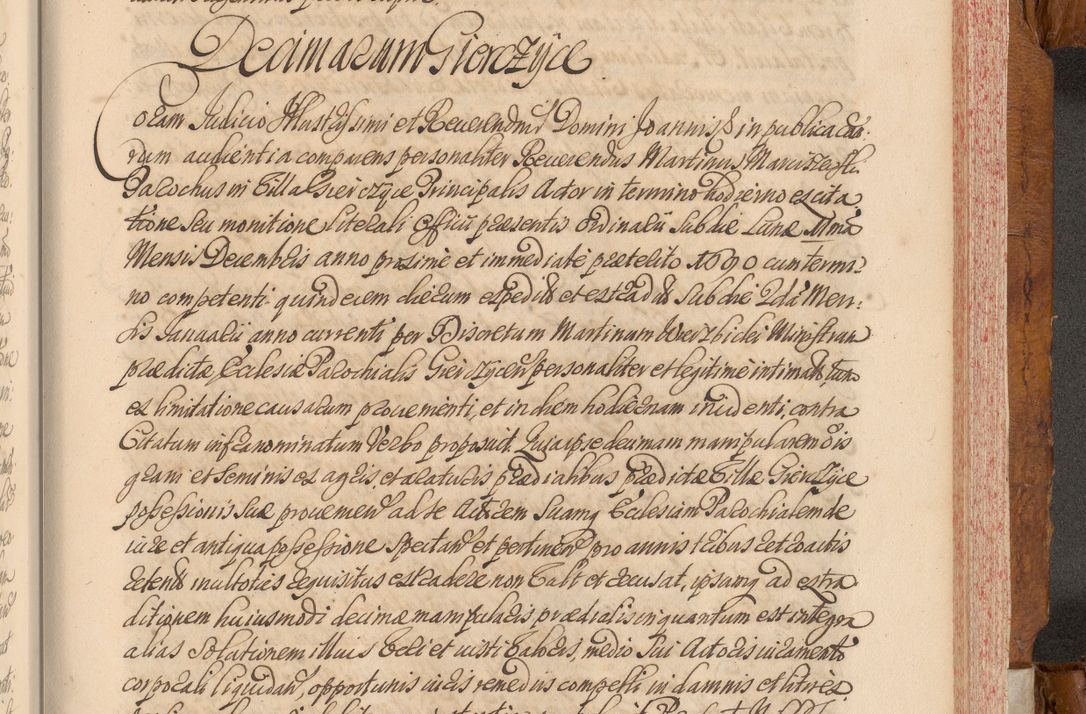 Decimarum Gierczyce
Coram Judicio Illustrissimi et Reverendissimi Domini Joannis in publica cau-
rum audientia comparens personaliter Reverendus Martinus
Parochus in Villa Gierczyce Principalis Actor in termino hodierno ex cita
tione seu monitione literali Officii præsentis ordinarii sub die Lunæ 11ma
Mensis Decembris anno proxime et immediate præterito 1690 cum termi
no competenti quindecem dierum expedit et extradit sub die 2da Men-
sis Januarii anno currenti per Discretum Martinum Wierzbicki Ministrum
prædictæ Ecclesiæ Parochialis Gierczycen personaliter et legitime intimat, tum
ex limitatione causarum provenienti, et in diem hodiernam incidenti, contra
Citatum infranominatum Verbo proposuit. Quia ipse decimam manipularem ois
grani et seminis ex agris, et araturis prædialibus prædictæ Villæ Gierczyce
possessionis suæ provenien ad se Actorem suamq Ecclesiam Parochialem de
iure et antiqua possessione spectan et pertinen pro annis tribus retroactis
retent multoties requisitus extradere non Valt et recusat, ipsumq ad extra
ditionem huiusmodi decimæ manipularis prædialis in quantum est integra
alias solutionem illius Veri et iusti Valoris, medio sui Actoris iuramento
corporali liquidan, opportunis iuris remediis compelli in damnis et litis